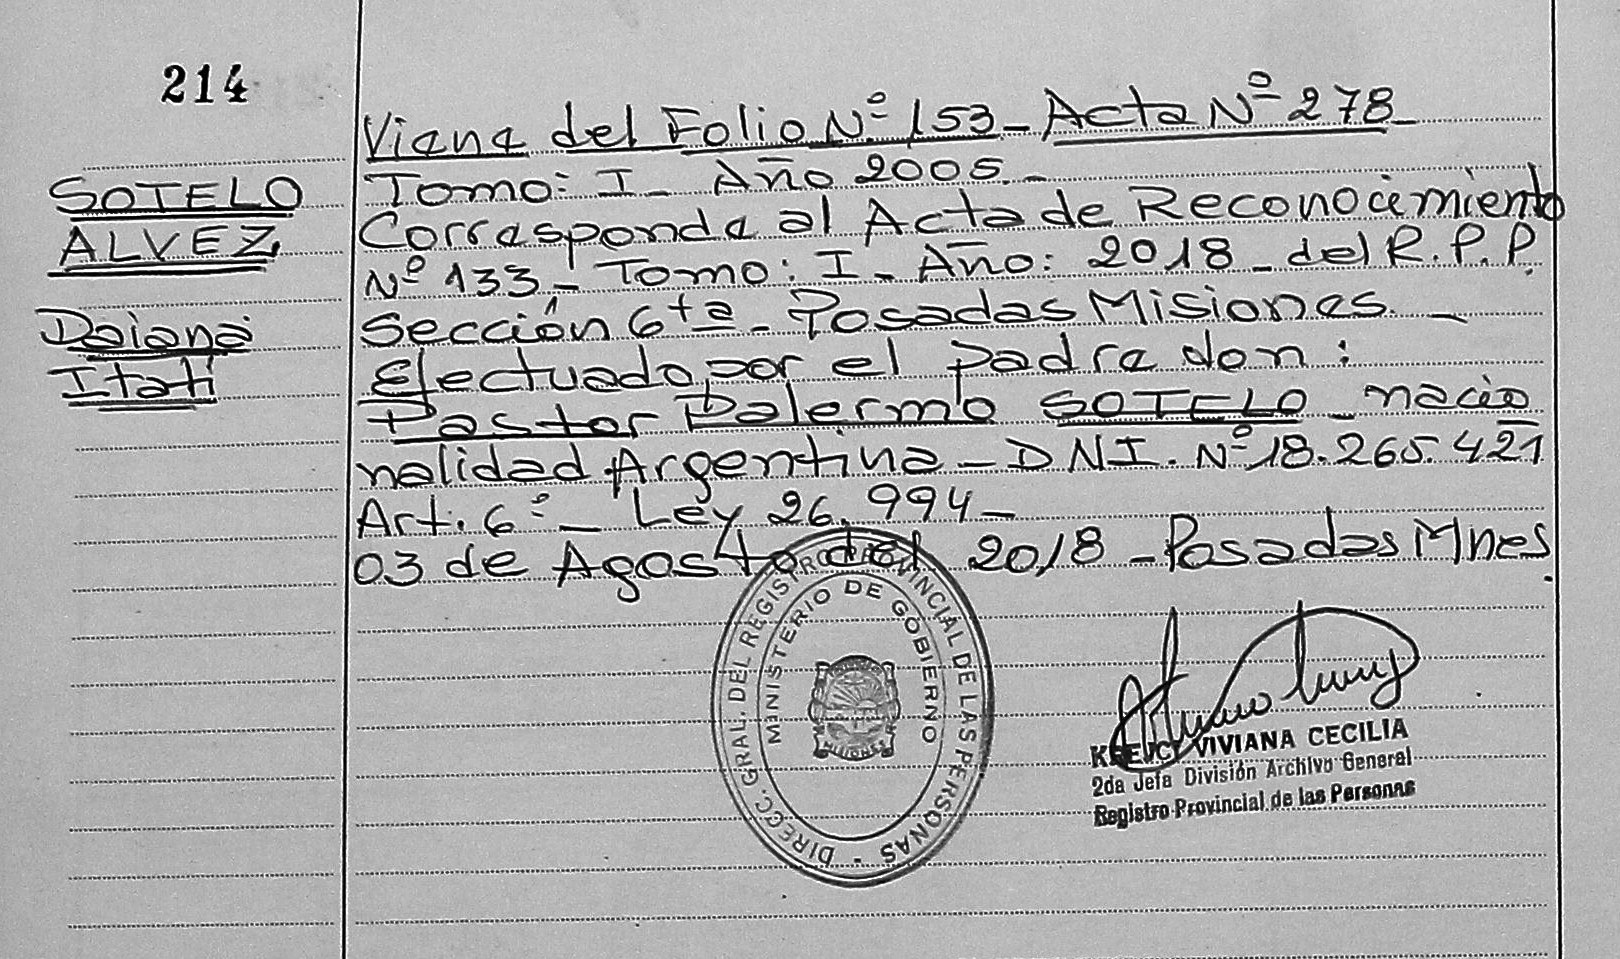 214
SOTELO
ALVEZ
Daiana
Itatí
Viene del Folio Nº 153 - Acta Nº 278
Tomo: I - Año 2005 -
Corresponde al Acta de Reconocimiento
Nº 133 - Tomo: I - Año: 2018 - del R.P.P.
Sección 6ta - Posadas Misiones. -
Efectuado por el padre don:
Pastor Palermo SOTELO - nacio
nalidad Argentina - DNI. Nº 18.265.421
Art. 6º - Ley 26.994 -
03 de Agosto del 2018 - Posadas Mnes.
DIRECC. GRAL. DEL REGISTRO PROVINCIAL DE LAS PERSONAS
MINISTERIO DE GOBIERNO
MISIONES
VIVIANA CECILIA
2da Jefa División Archivo General
Registro Provincial de las Personas